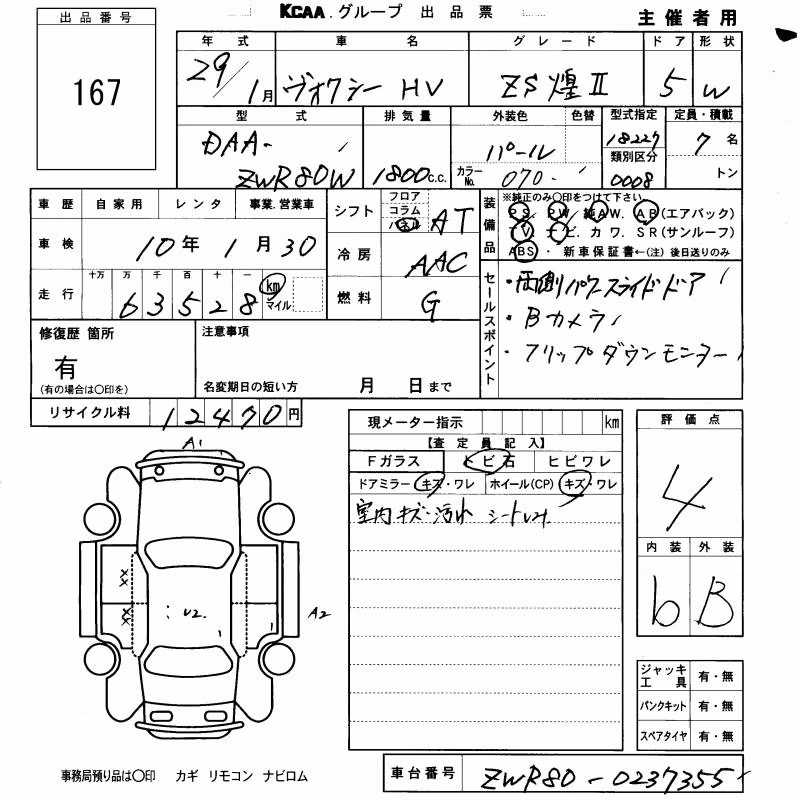 KCAA.グループ 出品票
主催者用
出品番号
167
年式 車名 グレード ドア 形状
29/1月 ヴォクシー HV ZS煌II 5 W
型式 排気量 外装色 色替 型式指定 定員・積載
DAA- パール 18227 7名
類別区分
ZWR80W 1800c.c. カラーNo. 070 0008 トン
車歴 自家用 レンタ 事業.営業車
シフト フロア コラム パネル AT
装備品
※純正のみ○印をつけて下さい
PS. PW/ 純AW. AB(エアバック)
TV. ナビ. カワ. SR(サンルーフ)
ABS・ 新車保証書←(注) 後日送りのみ
車検 10年 1月 30
冷房 AAC
走行 十万 万 千 百 十 一 km マイル
63528
燃料 G
セールスポイント
・両側パワースライドドア
・Bカメラ
・フリップダウンモニター
修復歴 箇所
有
(有の場合は○印を)
注意事項
名変期日の短い方 月 日まで
リサイクル料 12470円
現メーター指示 km
【査定員記入】
Fガラス トビ石 ヒビワレ
ドアミラー キズ・ワレ ホイール(CP) キズ・ワレ
室内キズ・汚れ
評価点
4
内装 外装
b B
A1
XX
XX
U2.
A2
ジャッキ工具 有・無
パンクキット 有・無
スペアタイヤ 有・無
事務局預り品は○印 カギ リモコン ナビロム
車台番号 ZWR80-0237355